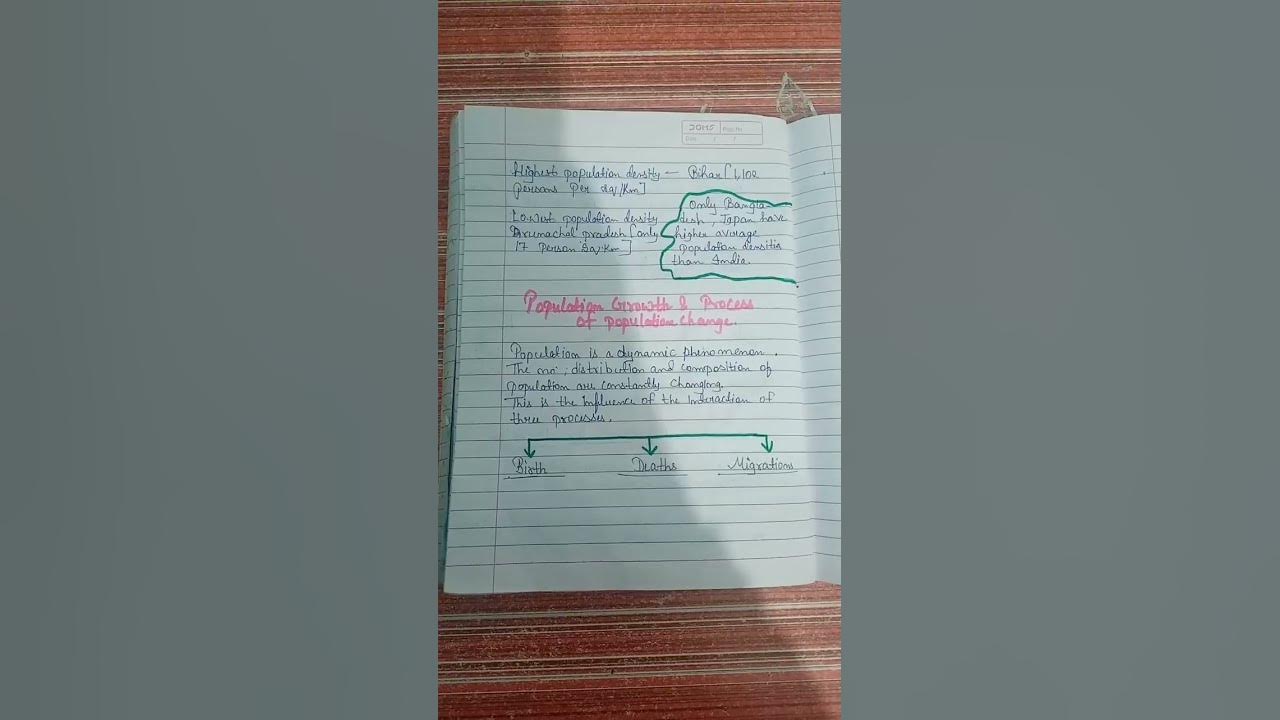 JOMS Page No.
Date / /
Highest population density — Bihar [1,102
persons Per sq/km]
Lowest population density
Arunachal pradesh [only
17 person Sq/km]
only Bangla
desh, Japan have
higher average
population densitis
than India.
Population Growth & Process
of population change.
Population is a dynamic phenomenon.
The no., distribution and composition of
population are constantly changing.
This is the influence of the interaction of
three processes.
Birth Deaths Migrations